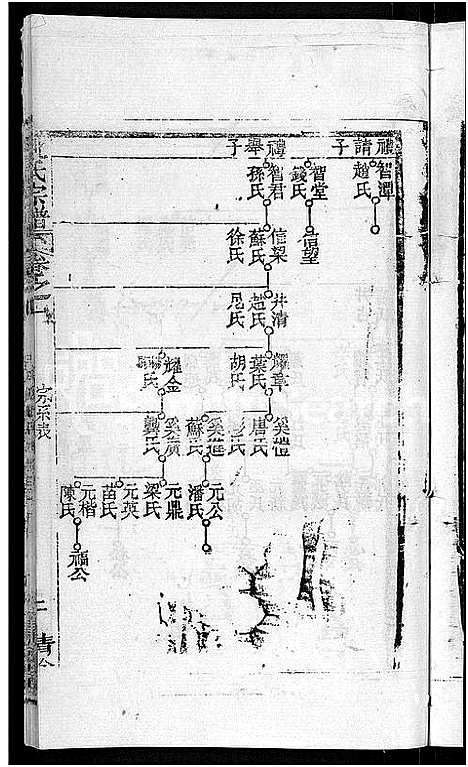 禮請子
智潭
趙氏
禮舉子
智堂
錢氏
信望
智君
孫氏
信梁
蘇氏
徐氏
井清
趙氏
尼氏
耀章
葉氏
胡氏
耀金
氏
奚榿
唐氏
氏
奚進
蘇氏
奚廣
龔氏
元公
潘氏
元鼎
梁氏
元英
苗氏
元楷
陳氏
福公
氏宗譜
卷之
宗系表